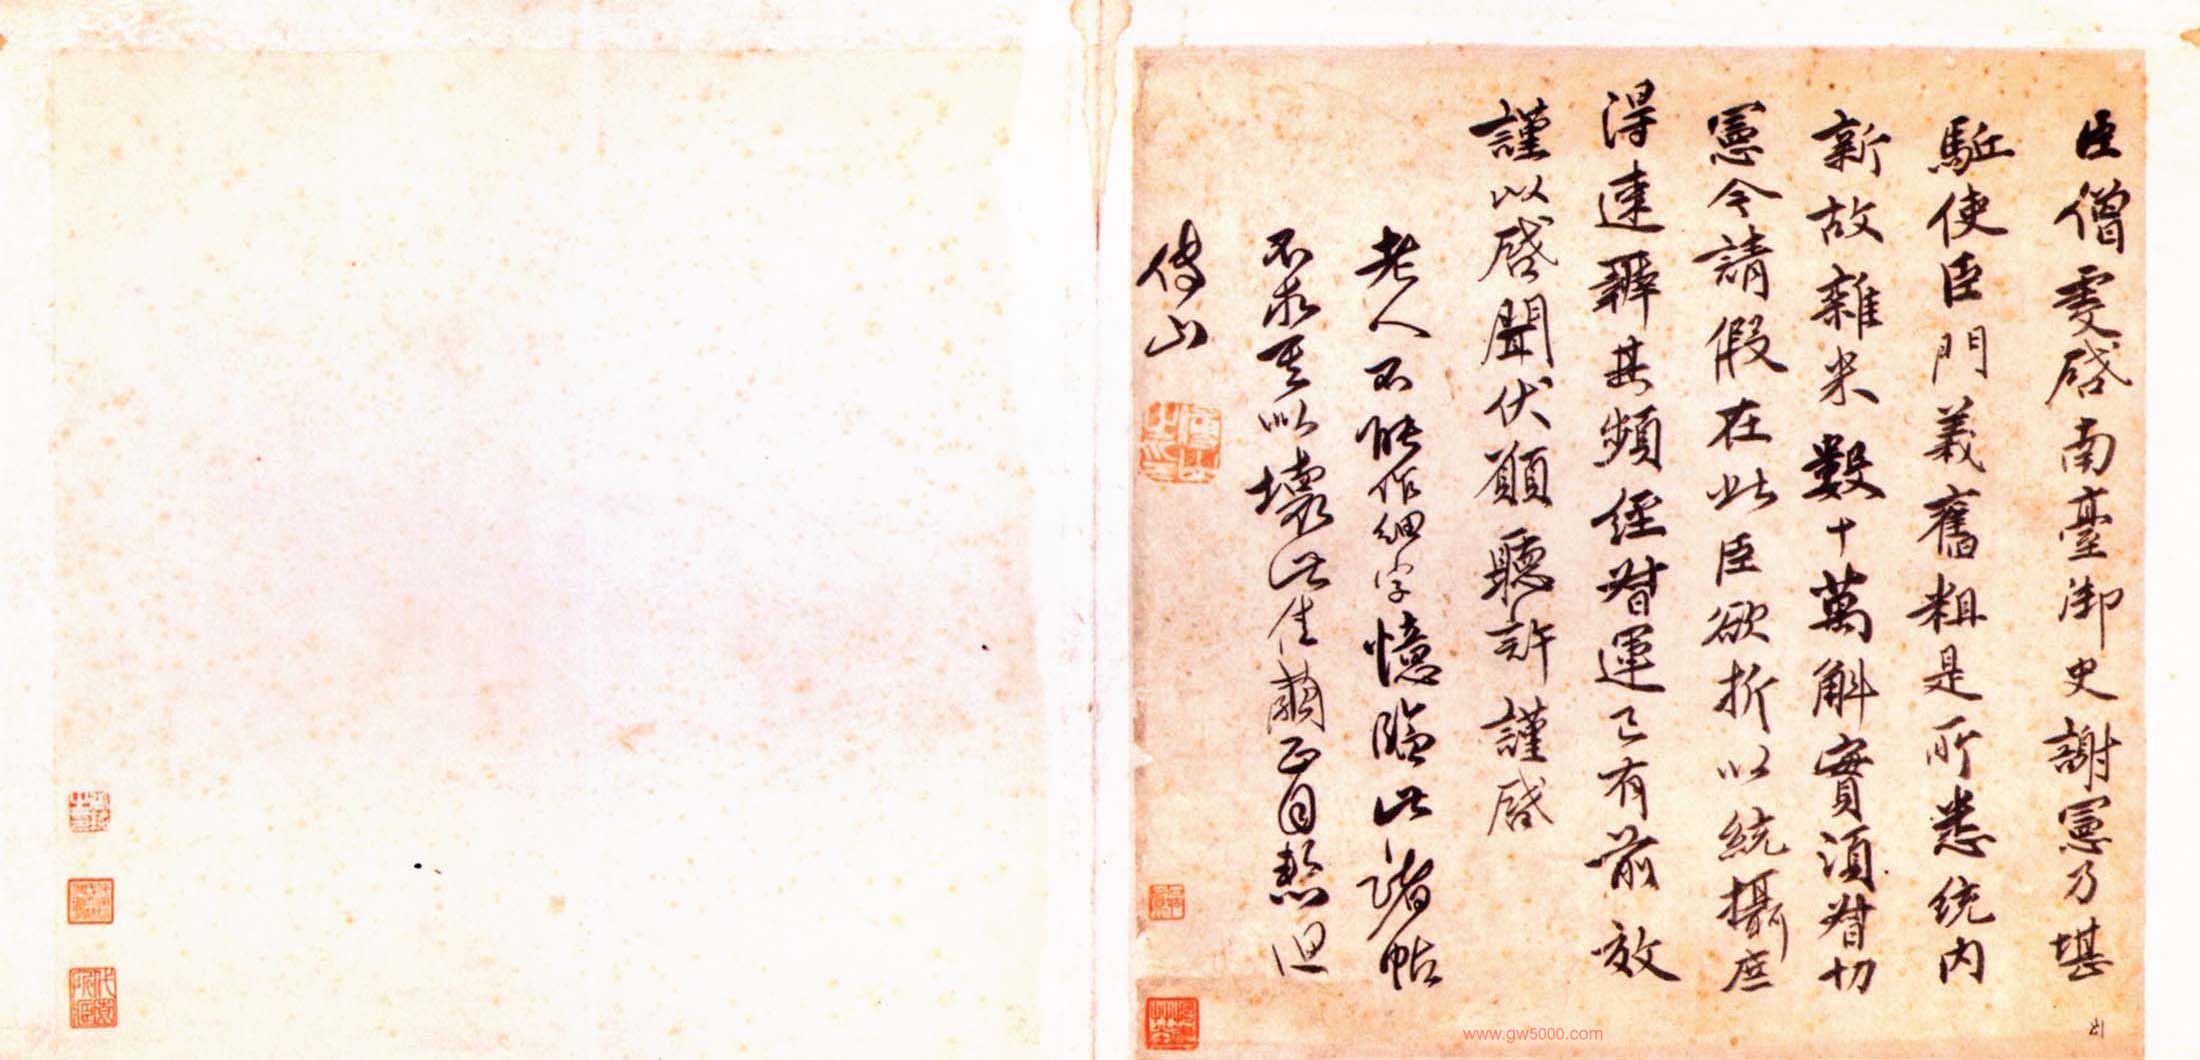 臣僧虔啓南臺御史謝憲乃堪
駈使臣門義舊粗是所悉統内
新故雜米數十萬斛實須督切
憲今請假在此臣欲折以統攝庶
得速辦其頻經督運已有前效
謹以啓聞伏願聽許謹啓
老人不能作細字憶臨此諸帖
不求其似壞此佳繭正自愁但
傅山
傅山之印
www.gw5000.com